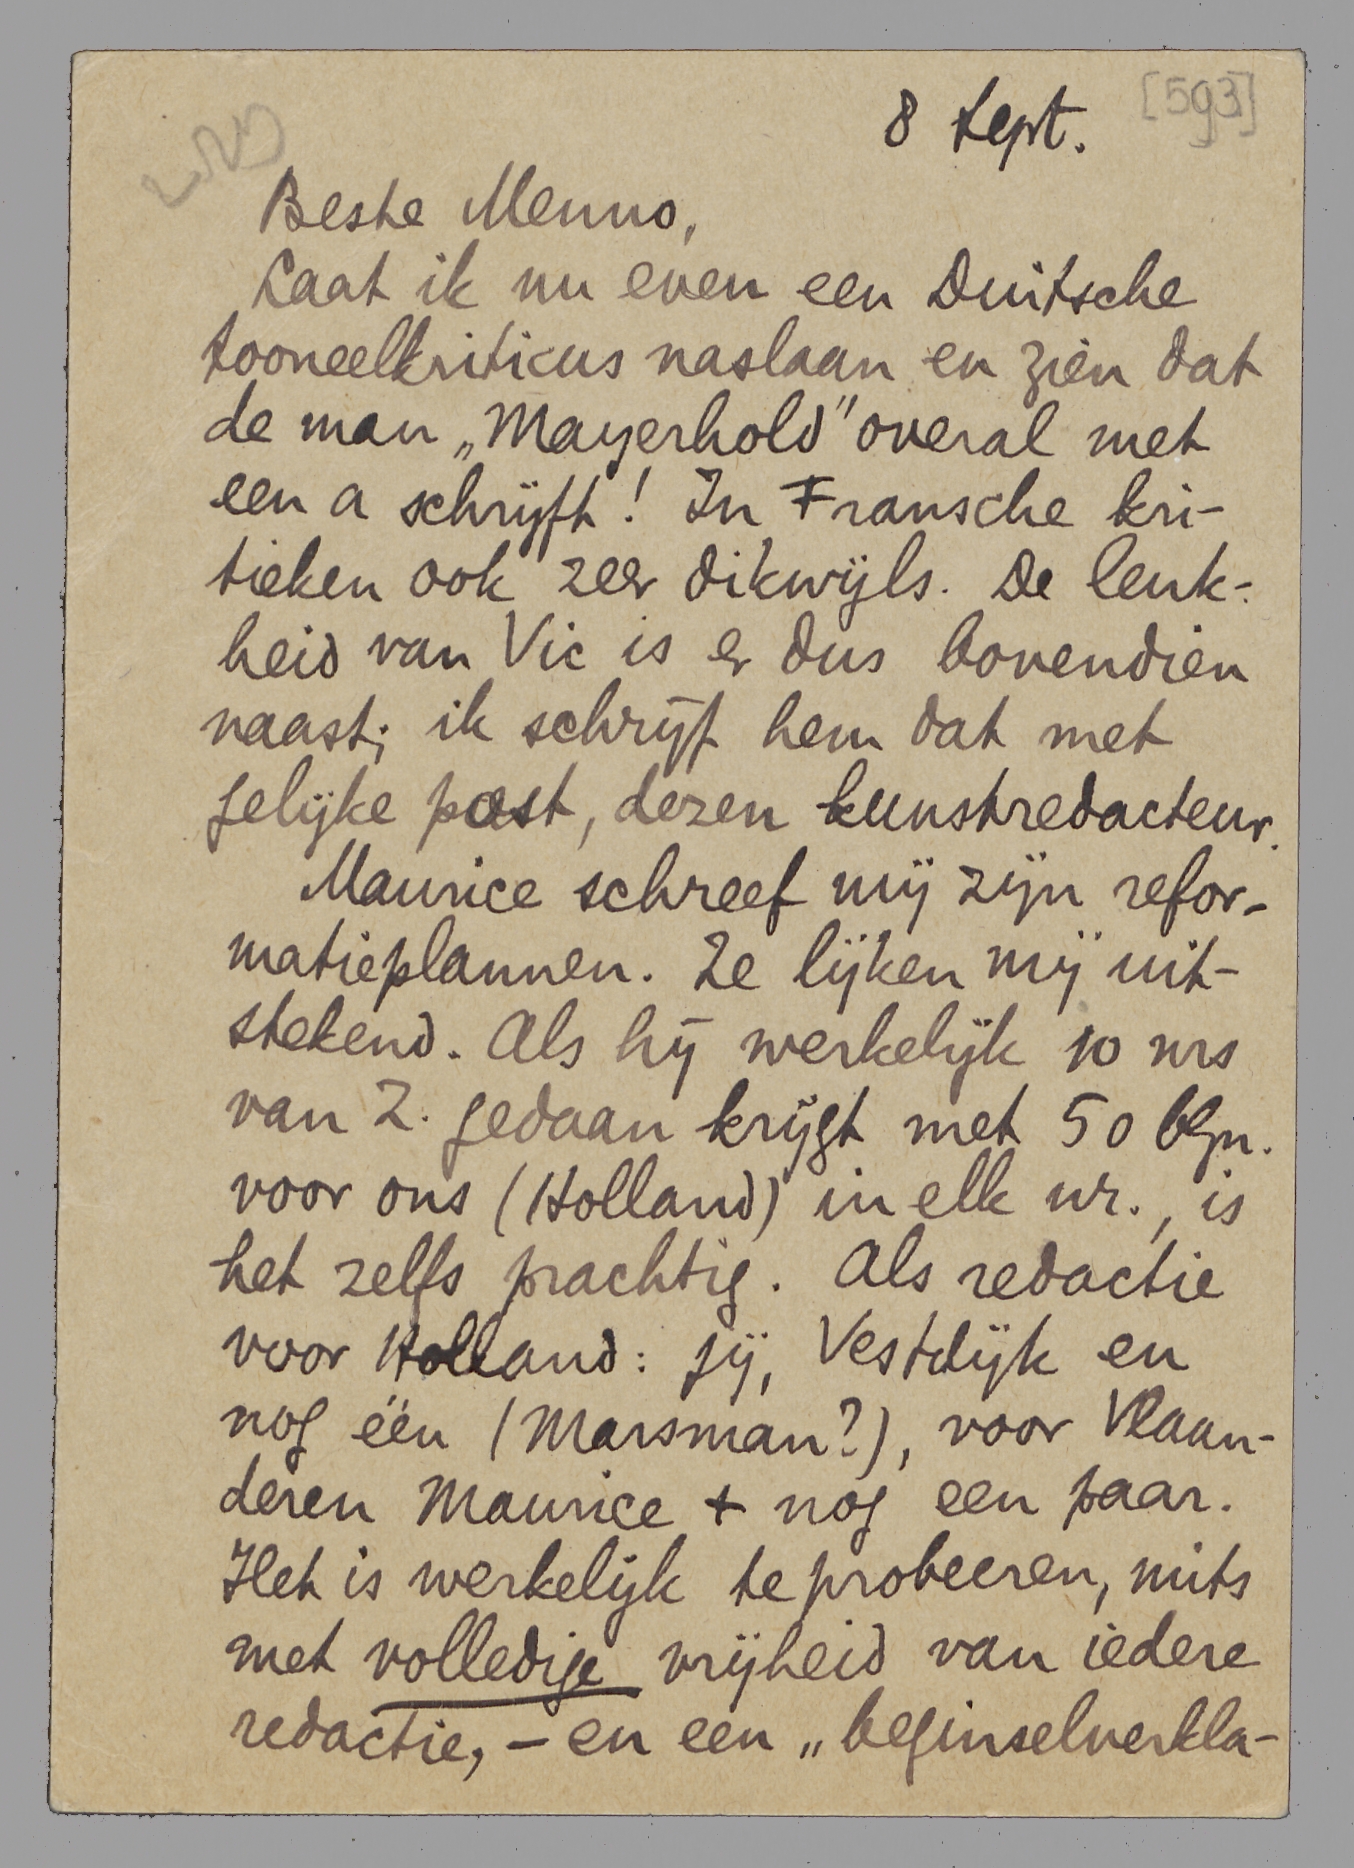 [593]
8 Sept.
Beste Menno,
Laat ik nu even een Duitsche
tooneelkriticus naslaan en zien dat
de man „Mayerhold" overal met
een a schrijft! In Fransche kri-
tieken ook zeer dikwijls. De leuk-
heid van Vic is er dus bovendien
naast; ik schrijf hem dat met
gelijke post, dezen kunstredacteur.
Maurice schreef mij zijn refor-
matieplannen. Ze lijken mij uit-
stekend. Als hij werkelijk 10 nrs
van Z. gedaan krijgt met 50 blzn.
voor ons (Holland) in elk nr., is
het zelfs prachtig. Als redactie
voor Holland: jij, Vestdijk en
nog één (Marsman?), voor Vlaan-
deren Maurice + nog een paar.
Het is werkelijk te probeeren, mits
met volledige vrijheid van iedere
redactie, – en een „beginselverkla-